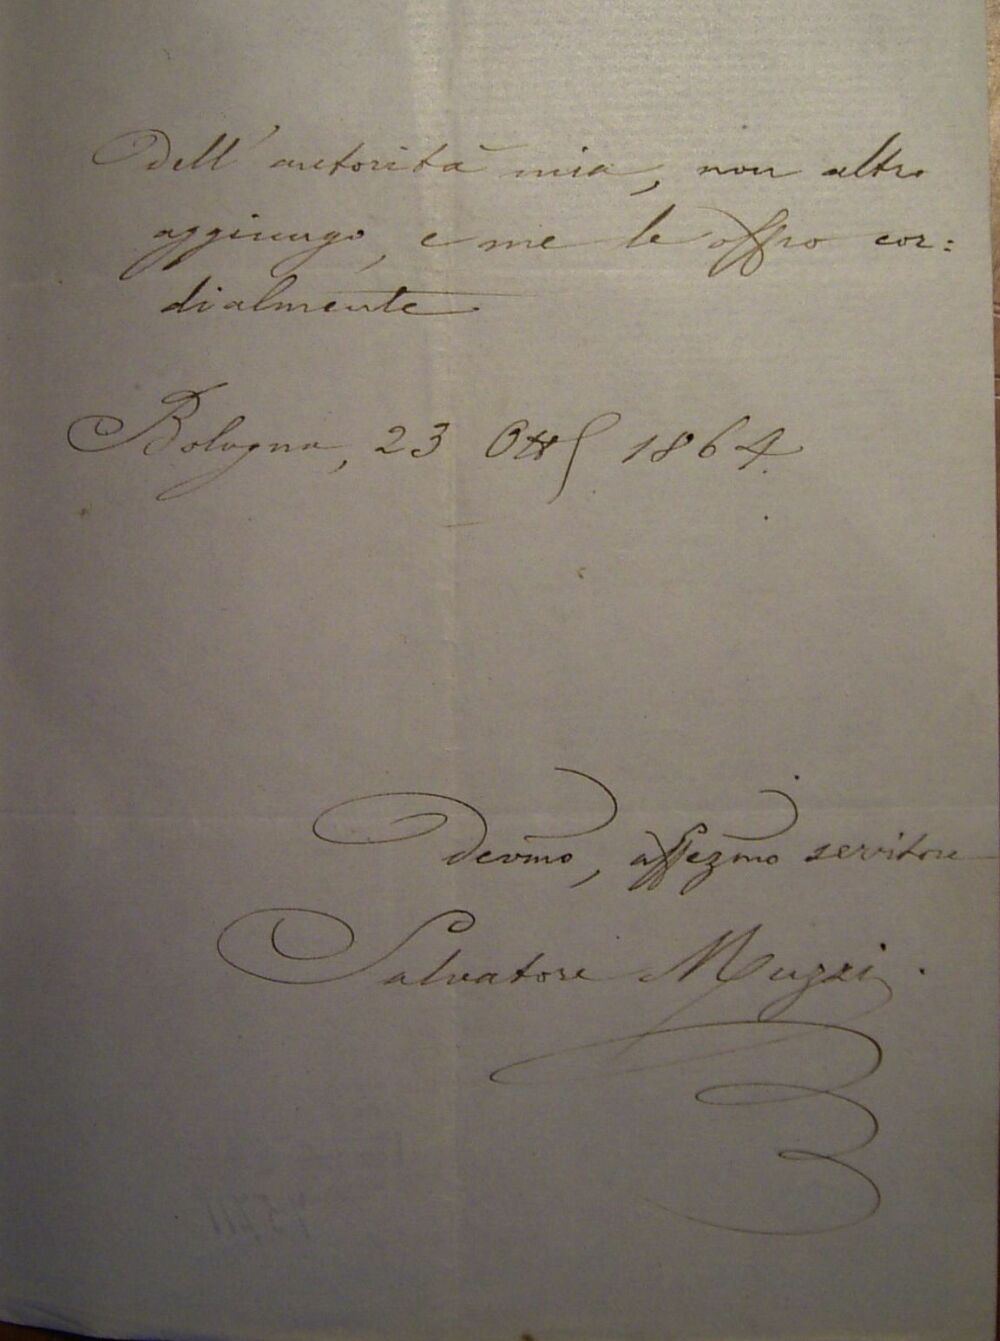 dell' autorità mia, non altro
aggiungo, e me le offro cor:
dialmente
Bologna, 23 Ott 1864.
Devmo, affezmo servitore
Salvatore Muzzi.